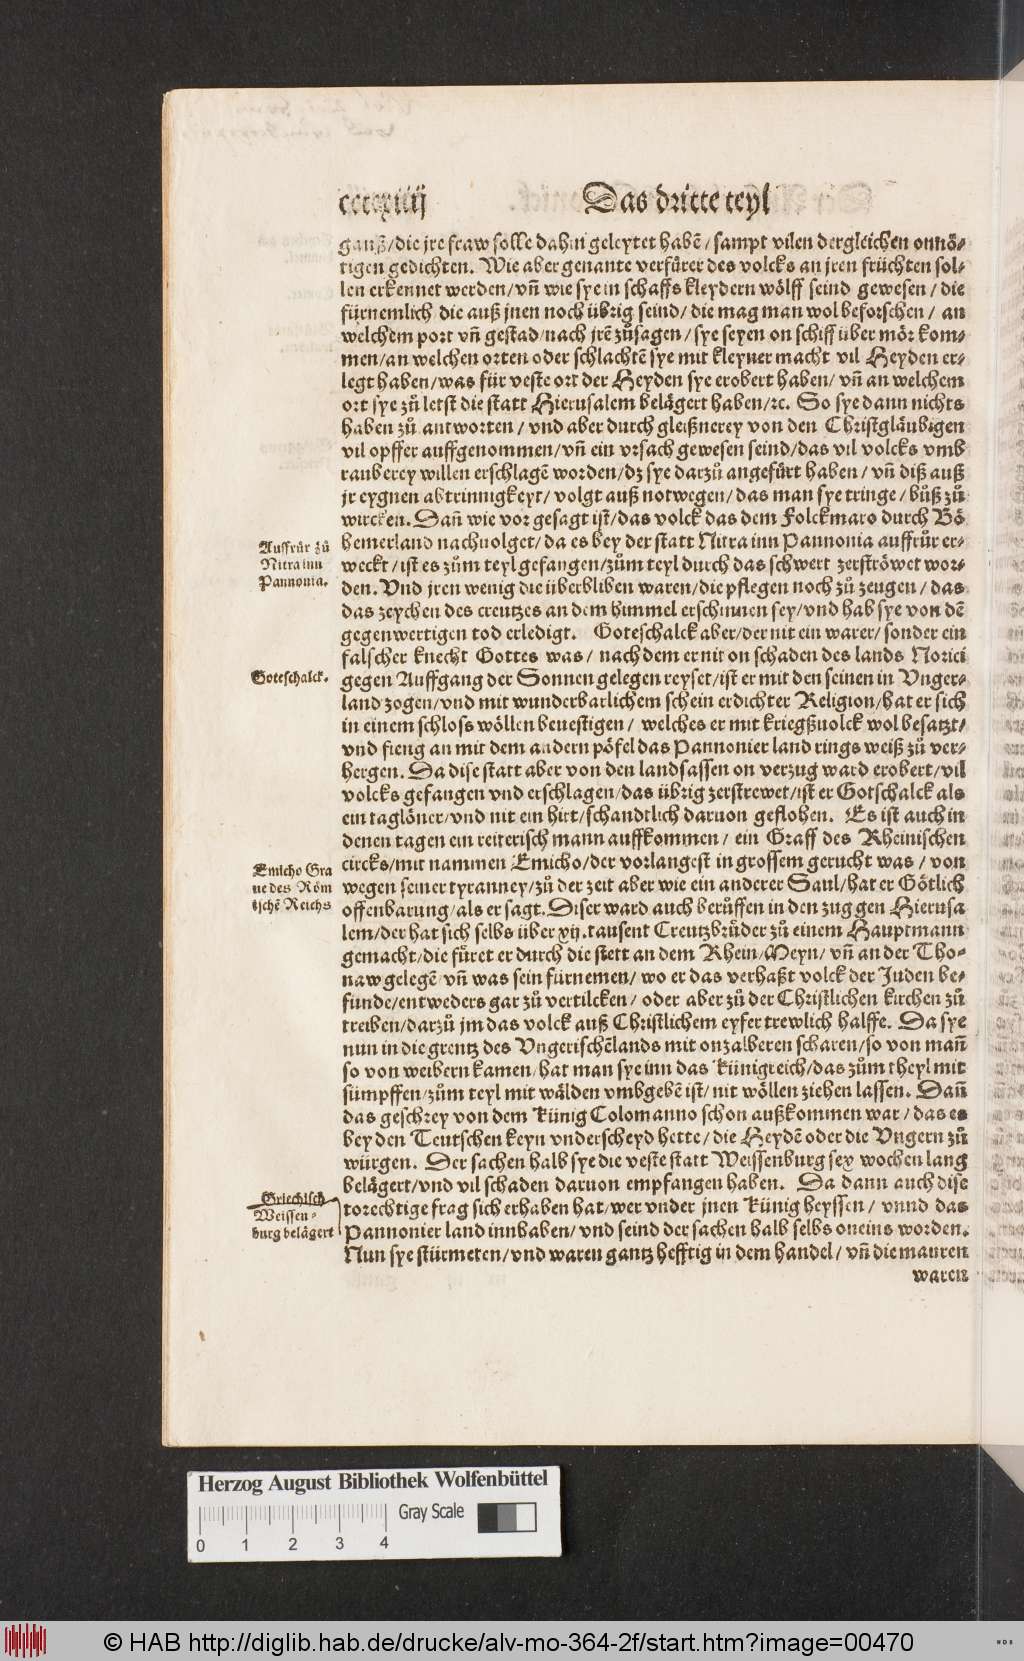 ccccxiiij
Das dritte teyl
ganß/die jre fraw solle dahin geleytet habẽ/sampt vilen dergleichen onnö-
tigen gedichten. Wie aber genante verfürer des volcks an jren früchten sol-
len erkennet werden/vñ wie sye in schaffs kleydern wölff seind gewesen/die
fürnemlich die auß jnen noch übrig seind/die mag man wol beforschen/an
welchem port vñ gestad/nach jrẽ zůsagen/sye seyen on schiff über mör kom-
men/an welchen orten oder schlachtẽ sye mit kleyner macht vil Heyden er-
legt haben/was für veste ort der Heyden sye erobert haben/vñ an welchem
ort sye zů letst die statt Hierusalem belägert haben/ꝛc. So sye dann nichts
haben zů antworten/vnd aber durch gleißnerey von den Christgläubigen
vil opffer auffgenommen/vñ ein vrsach gewesen seind/das vil volcks vmb
rauberey willen erschlagẽ worden/dz sye darzů angefürt haben/vñ diß auß
jr eygnen abtrinnigkeyt/volgt auß notwegen/das man sye tringe/bůß zů
wircken. Dañ wie vor gesagt ist/das volck das dem Folckmaro durch Bö
hemerland nachuolget/da es bey der statt Nitra inn Pannonia auffrůr er-
weckt/ist es zům teyl gefangen/zům teyl durch das schwert zerströwet wor-
den. Vnd jren wenig die überbliben waren/die pflegen noch zů zeugen/das
das zeychen des creutzes an dem himmel erschinnen sey/vnd hab sye von dẽ
gegenwertigen tod erledigt. Goteschalck aber/der nit ein warer/sonder ein
falscher knecht Gottes was/nach dem er nit on schaden des lands Norici
gegen Auffgang der Sonnen gelegen reyset/ist er mit den seinen in Vnger-
land zogen/vnd mit wunderbarlichem schein erdichter Religion/hat er sich
in einem schloss wöllen beuestigen/welches er mit kriegßuolck wol besatzt/
vnd fieng an mit dem andern pöfel das Pannonier land rings weiß zů ver-
hergen. Da dise statt aber von den landsassen on verzug ward erobert/vil
volcks gefangen vnd erschlagen/das übrig zerstrewet/ist er Gotschalck als
ein taglöner/vnd nit ein hirt/schandtlich daruon geflohen. Es ist auch in
denen tagen ein reiterisch mann auffkommen/ein Graff des Rheinischen
circks/mit nammen Emicho/der vorlangest in grossem gerucht was/von
wegen seiner tyranney/zů der zeit aber wie ein anderer Saul/hat er Götlich
offenbarung/als er sagt. Diser ward auch berůffen in den zug gen Hierusa
lem/der hat sich selbs über xij. tausent Creutzbrüder zů einem Hauptmann
gemacht/die füret er durch die stett an dem Rhein/Meyn/vñ an der Tho-
naw gelegẽ vñ was sein fürnemen/wo er das verhaßt volck der Juden be-
funde/entweders gar zů vertilcken/oder aber zů der Christlichen kirchen zů
treiben/darzů jm das volck auß Christlichem eyfer trewlich halffe. Da sye
nun in die grentz des Vngerischẽ lands mit onzalberen scharen/so von mañ
so von weibern kamen/hat man sye inn das künigreich/das zům theyl mit
sümpffen/zům teyl mit wälden vmbgebẽ ist/nit wöllen ziehen lassen. Dañ
das geschrey von dem künig Colomanno schon außkommen war/das es
bey den Teutschen keyn vnderscheyd hette/die Heydẽ oder die Vngern zů
würgen. Der sachen halb sye die veste statt Weissenburg sex wochen lang
belägert/vnd vil schaden daruon empfangen haben. Da dann auch dise
torechtige frag sich erhaben hat/wer vnder jnen künig heyssen/vnnd das
Pannonier land innhaben/vnd seind der sachen halb selbs oneins worden.
Nun sye stürmeten/vnd waren gantz hefftig in dem handel/vñ die mauren
waren
Auffrůr zů
Nitra inn
Pannonia.
Goteschalck.
Emicho Gra
ue des Röm
ischẽ Reichs
Griechisch
Weissen-
burg belägert
Herzog August Bibliothek Wolfenbüttel
Gray Scale
0 1 2 3 4
© HAB http://diglib.hab.de/drucke/alv-mo-364-2f/start.htm?image=00470